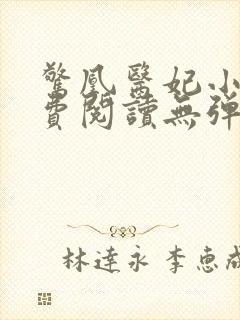 驚鳳醫妃小
費閱讀無彈
林達永 李惠成